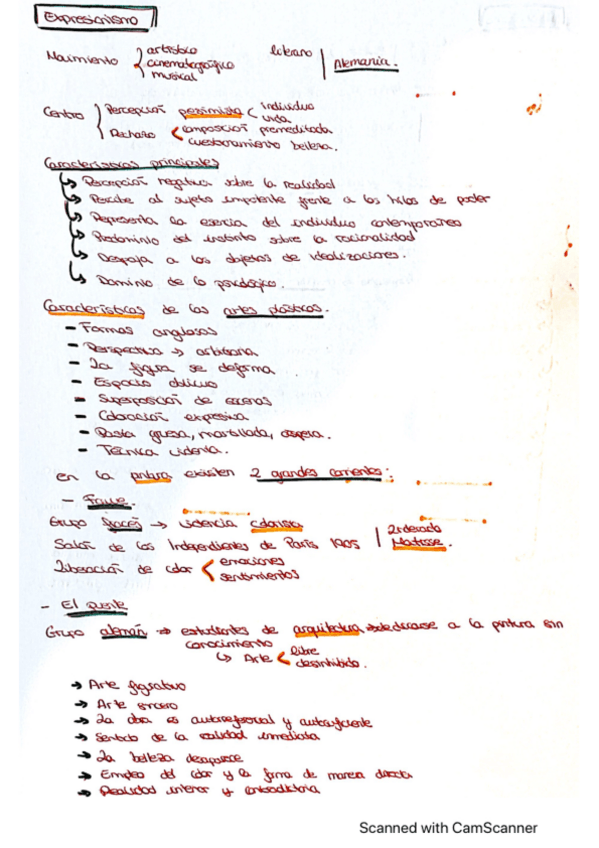 Expresionismo
Movimiento { artístico literario | Alemania.
cinematográfico
musical
Centro } Percepción pesimista < individuo
vida
Rechazo < composición premeditada
cuestionamiento belleza.
Características principales
Percepción negativa sobre la realidad
Percibe al sujeto impotente frente a los hilos de poder
Representa la esencia del individuo contemporáneo
Predominio del instinto sobre la racionalidad
Despoja a los objetos de idealizaciones.
Dominio de lo psicológico.
Características de las artes plásticas.
- Formas angulosas
- Perspectiva → arbitraria
- La figura se deforma
- Espacio oblicuo
- Superposición de escenas
- Coloración expresiva
- Pasta gruesa, martillada, áspera.
- Técnica violenta.
en la pintura existen 2 grandes corrientes:
- Fauve.
Grupo francés → violencia colorista
Salón de los Independientes de París 1905 | liderado Matisse.
Liberación de color < emociones
sentimientos
- El puente
Grupo alemán → estudiantes de arquitectura → dedicarse a la pintura sin
conocimiento
↳ Arte < libre
desinhibido.
→ Arte figurativo
→ Arte sincero
→ La obra es autorreferencial y autosuficiente
→ Sentido de la realidad inmediata
→ La belleza desaparece
→ Empleo del color y la forma de manera directa
→ Realidad interior y contradictoria
Scanned with CamScanner